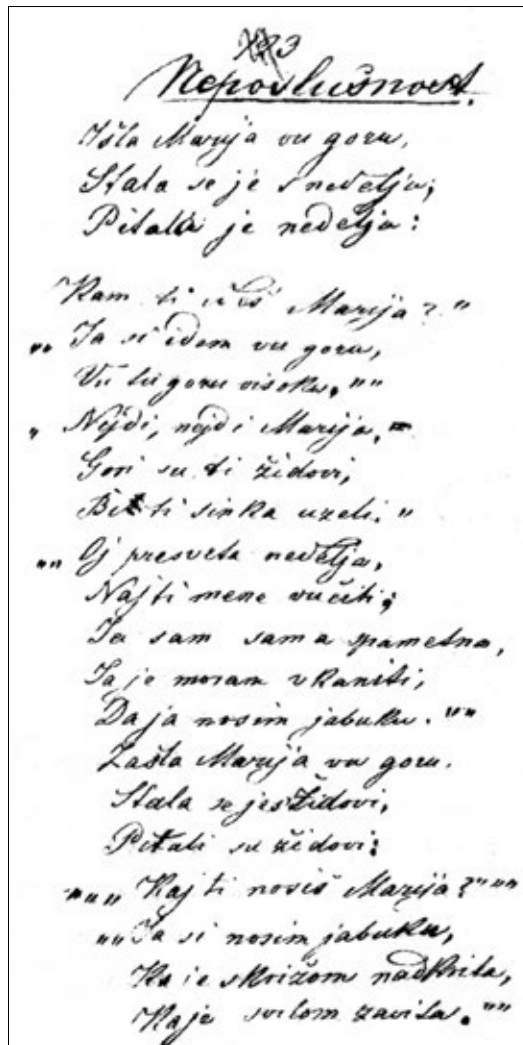 3
Neposlušnost.
Išla Marija vu goru,
Stala se je s nedelju;
Pitala je nedelja:
Kam ti ideš Marija?"
„„ Ja si idem vu goru,
Vu tu goru visoku.""
„ Nejdi, nejdi Marija,
Gori su ti židovi,
Bi ti sinka uzeli."
„„ Oj presveta nedelja,
Najti mene vučiti;
Ja sam sama spametna,
Ja je moram vkaniti,
Da ja nosim jabuku.""
Zašla Marija vu goru.
Stala se je s Židovi,
Pitali su židovi:
„„„ Kaj ti nosiš Marija?"""
„„ Ja si nosim jabuku,
Ka je skrižom nadkrita,
Ka je svilom zavita.""